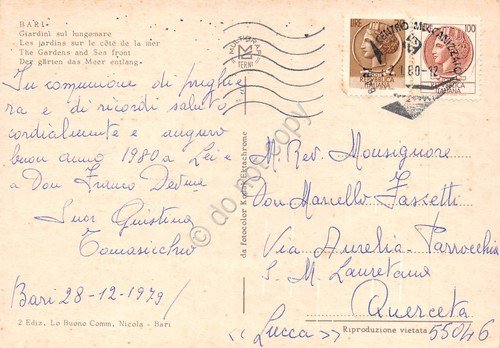 BARI
Giardini sul lungomare
Les jardins sur le côté de la mer
The Gardens and Sea front
Der gärten das Meer entlang
In comunione di preghie
ra e di ricordi saluto
cordialmente e auguro
buon anno 1980 a Lei e
a Don Franco
Suor Giustina
Bari 28-12-1979/
2 Ediz. Lo Buono Comm. Nicola - Bari
da fotocolor Kodak Ektachrome
do not copy
TERNI
LIRE
100
POSTE
ITALIANA
ITALIANA
CENTRO MECCANIZZATO
M. Rev. Monsignore
Don Marcello Fassetti
Via Aurelia-Parrocchia
S. M. Lauretana
Querceta
<<Lucca>>
55046
Riproduzione vietata